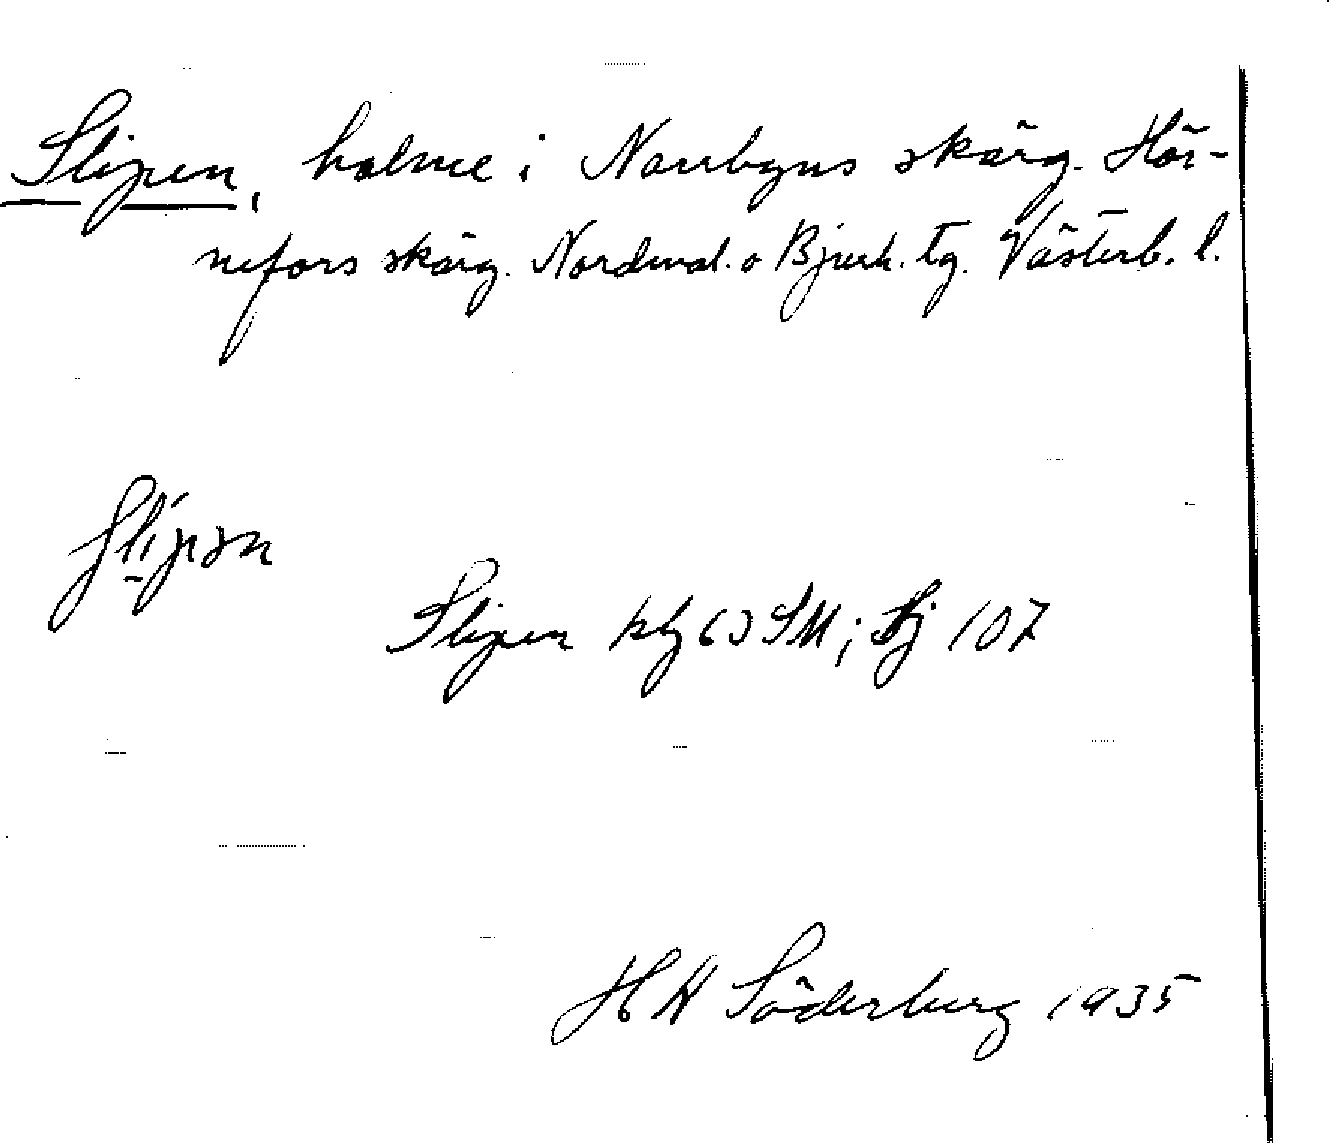 Slipen, holme i Norrbyns skärg. Hör-
nefors skärg. Nordmal. o Bjurh. tg. Västerb. l.
slípən
Slipen kbl 63 SM; Sj 107
H A Söderberg 1935